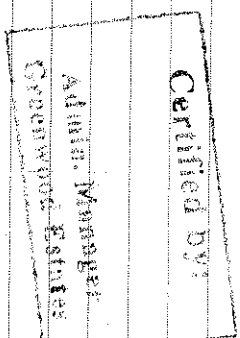 Certified by:
Admn. Manager
Greenwood Estates